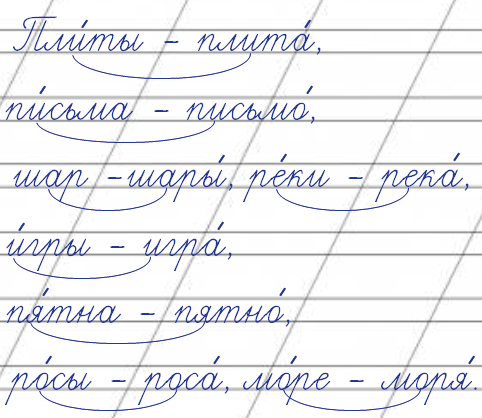 Пли́ты – плита́,
пи́сьма – письмо́,
шар – шары́, ре́ки – река́,
и́гры – игра́,
пя́тна – пятно́,
ро́сы – роса́, мо́ре – моря́.